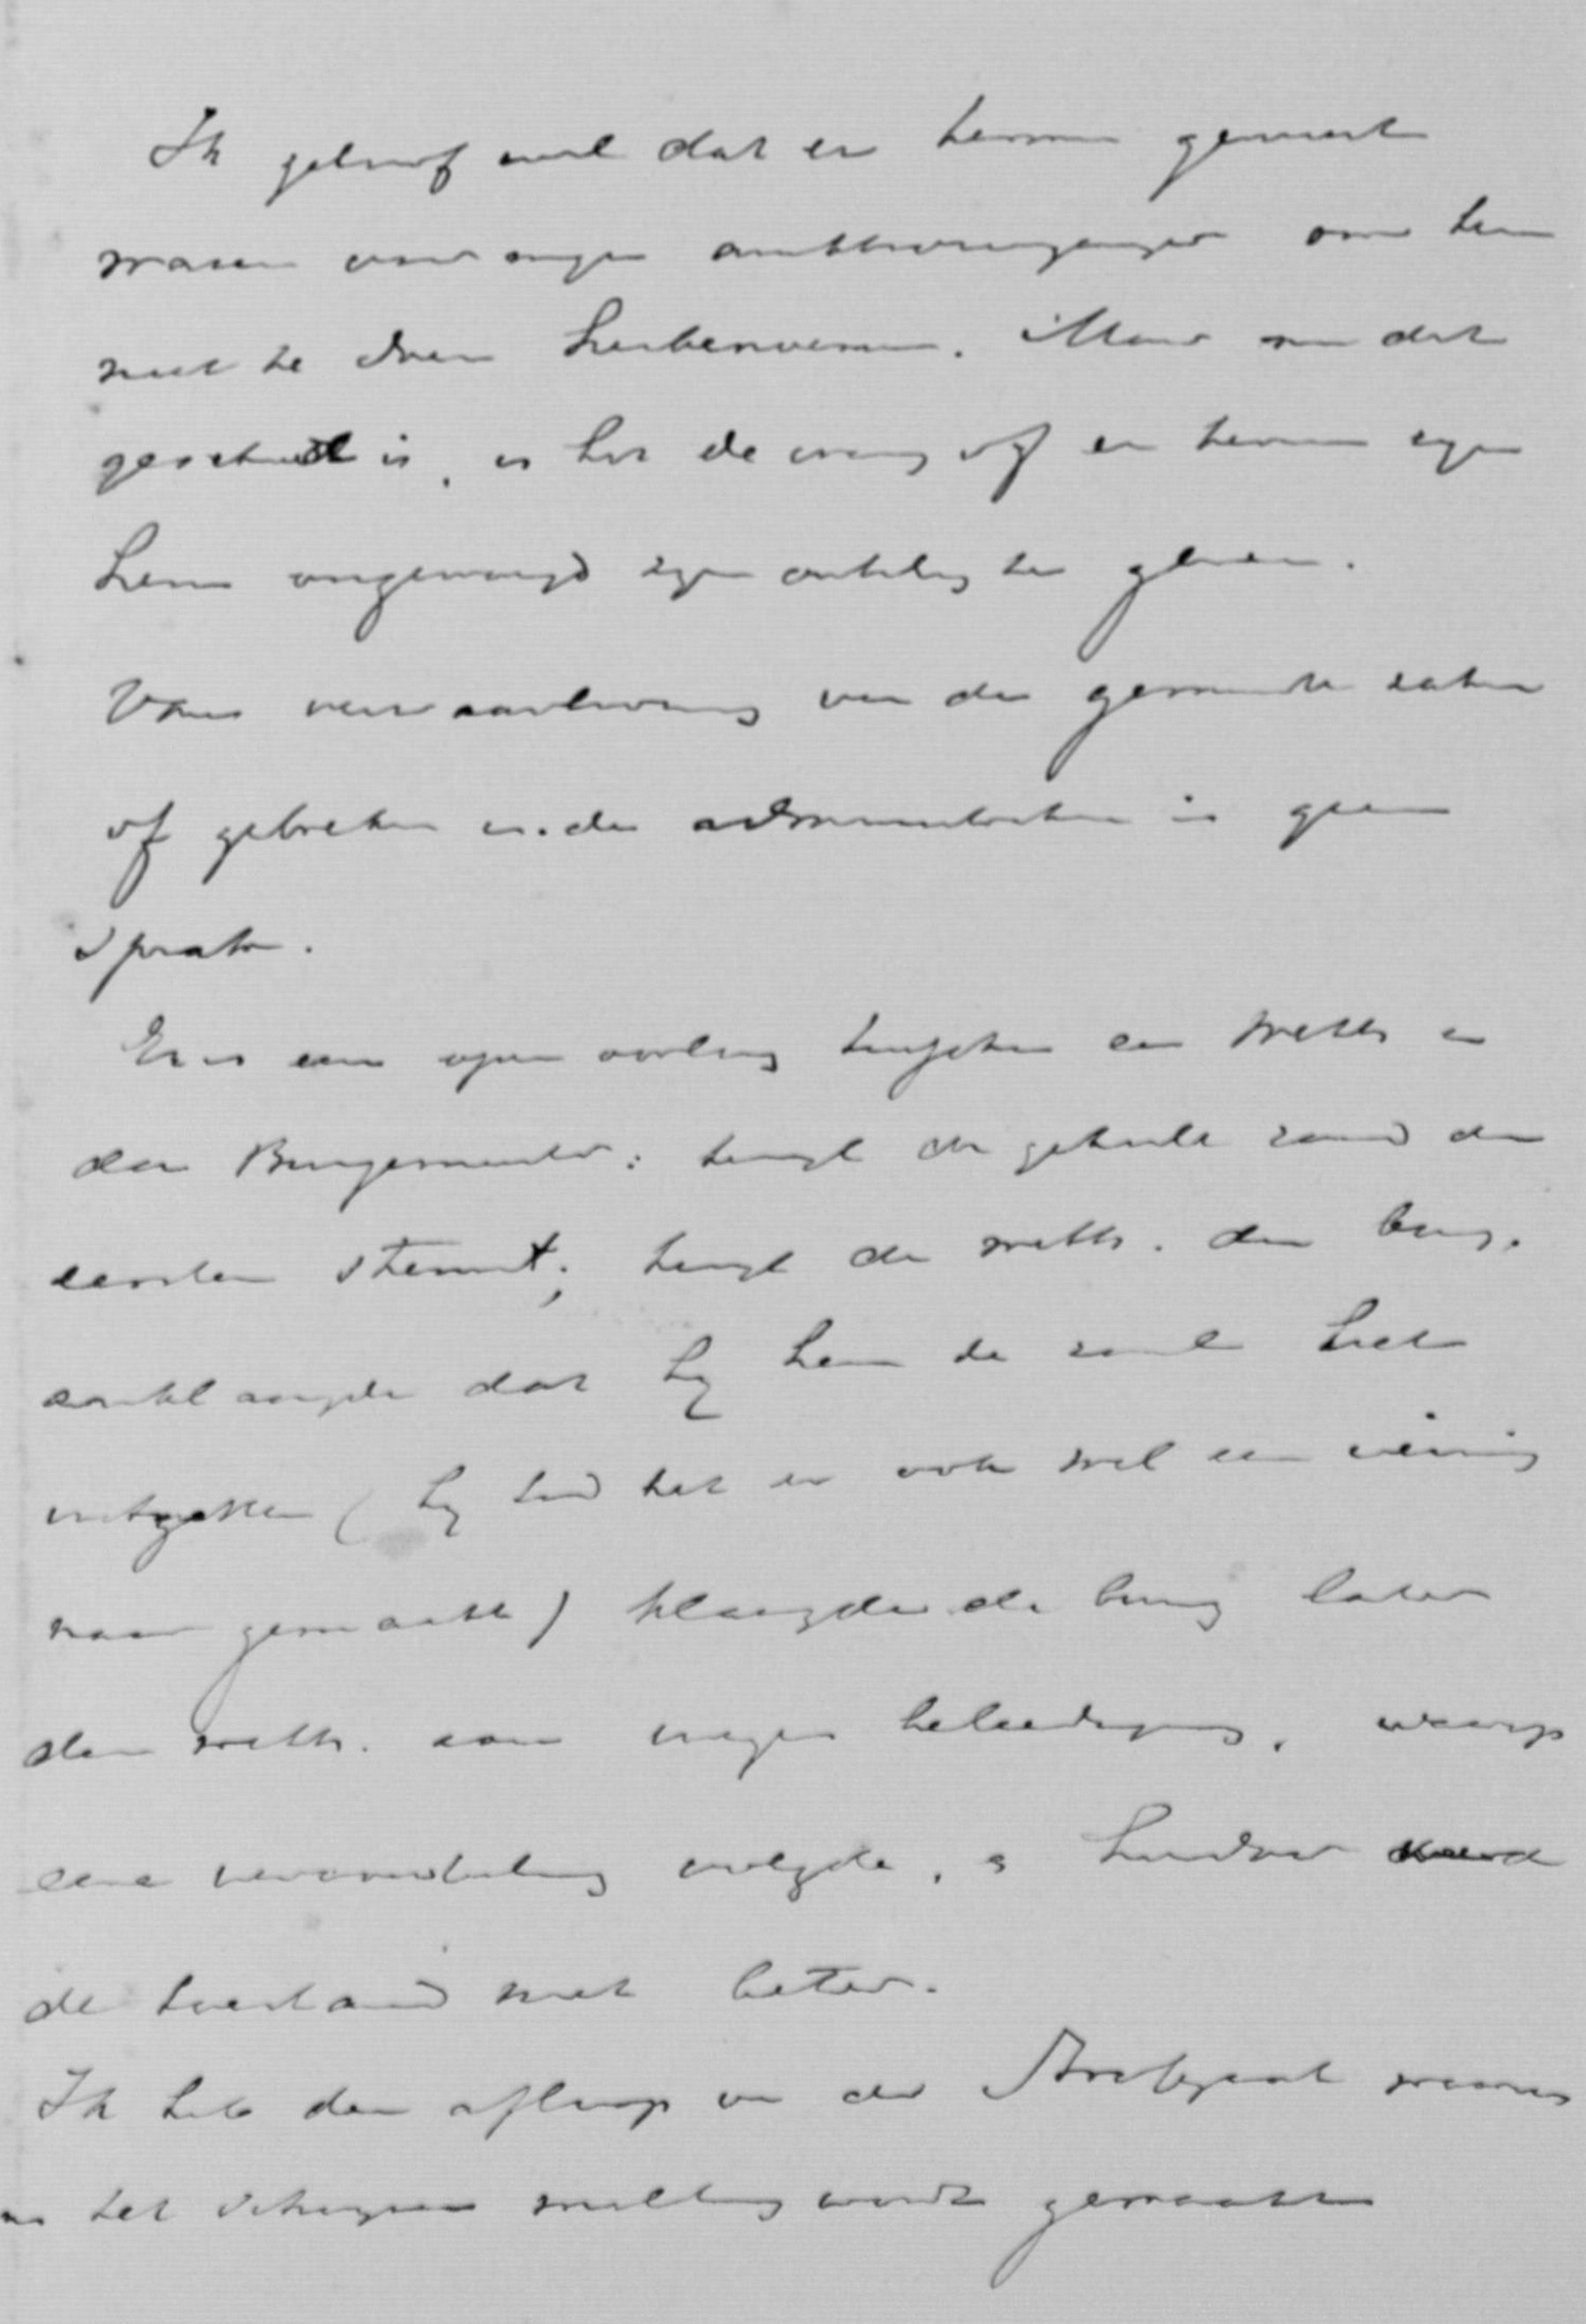 Ik geloof wel dat er termen geweest
waren voor mijn ambtsvoorganger om hem
niet te doen herbenoemen. Maar nu dat
geschied is, is het de vraag of er termen zijn
hem ongevraagd zijn ontslag te geven.
Van verwaarloozing van de gemeente zaken
of gebreken in de administratie is geen
sprake.
Er is een open oorlog tusschen een weth. en
den Burgemeester: terwijl de geheele raad den
eersten steunt; terwijl de weth. den burg.
aanklaagde dat hij hem de raad had
uitgezet (hij had het er ook wel een weinig
naar gemaakt) klaagde de burg later
den weth. aan wegens beleediging, waarop
eene veroordeeling volgde, en hierdoor werd
de toestand niet beter.
Ik heb den afloop van de strafzaak
in het schrijven melding wordt gemaakt